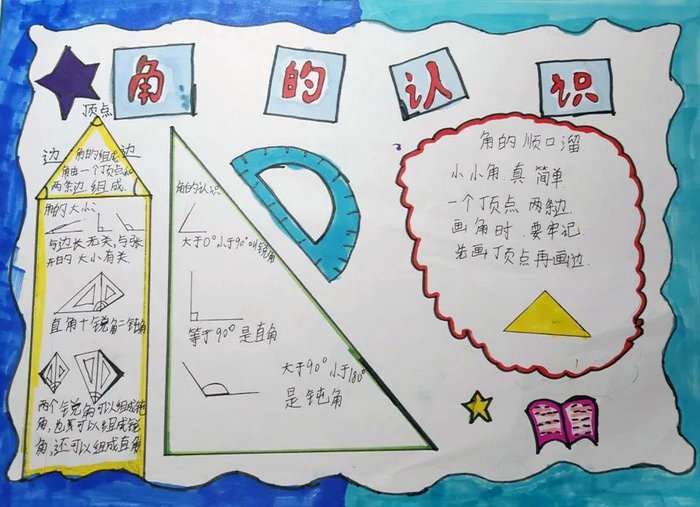 角的认识
顶点
边 边
角的组成
角由一个顶点和
两条边组成
角的大小:
与边长无关,与张
开的大小有关
直角+锐角=钝角
两个锐角可以组成钝
角,也可以组成锐
角,还可以组成直角
角的认识
大于0°小于90°叫锐角
等于90°是直角
大于90°小于180°
是钝角
角的顺口溜
小小角真简单
一个顶点两条边
画角时要牢记
先画顶点再画边